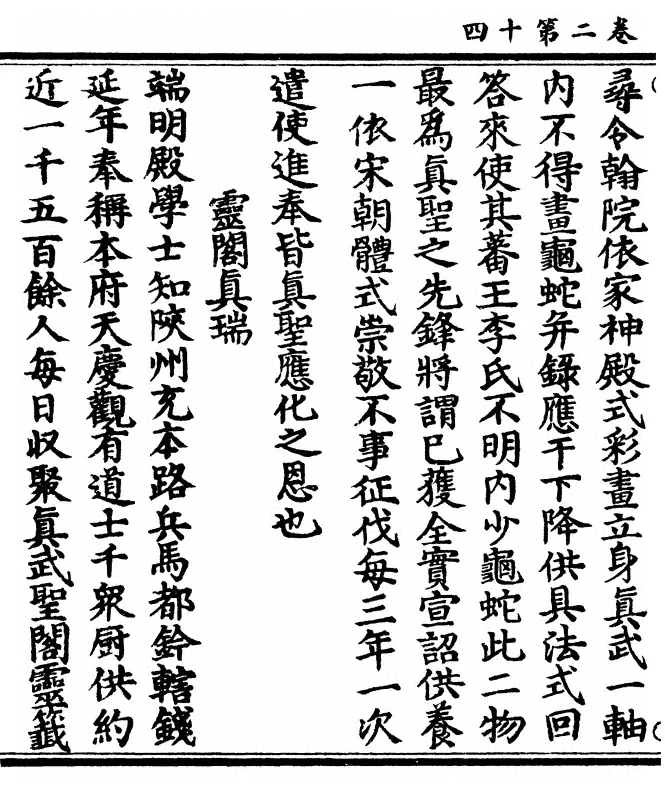 卷二第十四
尋令翰院依家神殿式彩畫立身眞武一軸
内不得畫龜蛇幷錄應干下降供具法式回
答來使其蕃王李氏不明内少龜蛇此二物
最爲眞聖之先鋒將謂已獲全實宣詔供養
一依宋朝體式崇敬不事征伐每三年一次
遣使進奉皆眞聖應化之恩也
靈閣眞瑞
端明殿學士知陝州充本路兵馬都鈐轄錢
延年奉稱本府天慶觀有道士千衆厨供約
近一千五百餘人每日収聚眞武聖閣靈籤